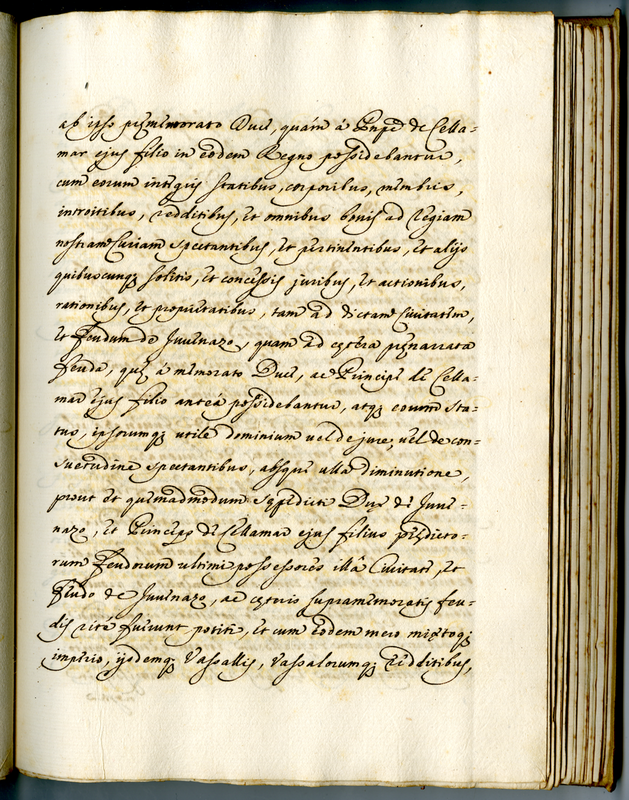 ab ipso prȩmemorato Duce, quám á Pnpe de Cella=
mar ejus filio in eodem Regno possidebantur,
cum eorum integris statibus, corporibus, membris,
introitibus, redditibus, et omnibus bonis ad Regiam
nostram Curiam spectantibus, et pertinentibus, et alijs
quibuscunq; solitis, et concessis juribus, et actionibus,
rationibus, et proprietatibus, tam ad dictam Civitatem,
et feudum de Juvenazo, quam ad cȩtera prȩnarrata
feuda, quȩ á memorato Duce, ac Principe de Cella=
mar ejus filio anteá possidebantur, atq; eorum sta=
tus, ipsorumq; utile dominium vel de jure, vel de con=
suetudine spectantibus, absque ulla diminutione,
prout et quemadmodum Sȩpedicti Dux de Juve=
nazo, et Princeps de Cellamar ejus filius prȩdicto=
rum feudorum ultimi possessores illâ Civitate, et
feudo de Juvenazo, ac cȩteris supramemoratis feu=
dis rité fuerunt potiti, et cum eodem mero mixtoq;
imperio, ijsdemq; Vassallis, Vassalorumq; redditibus,